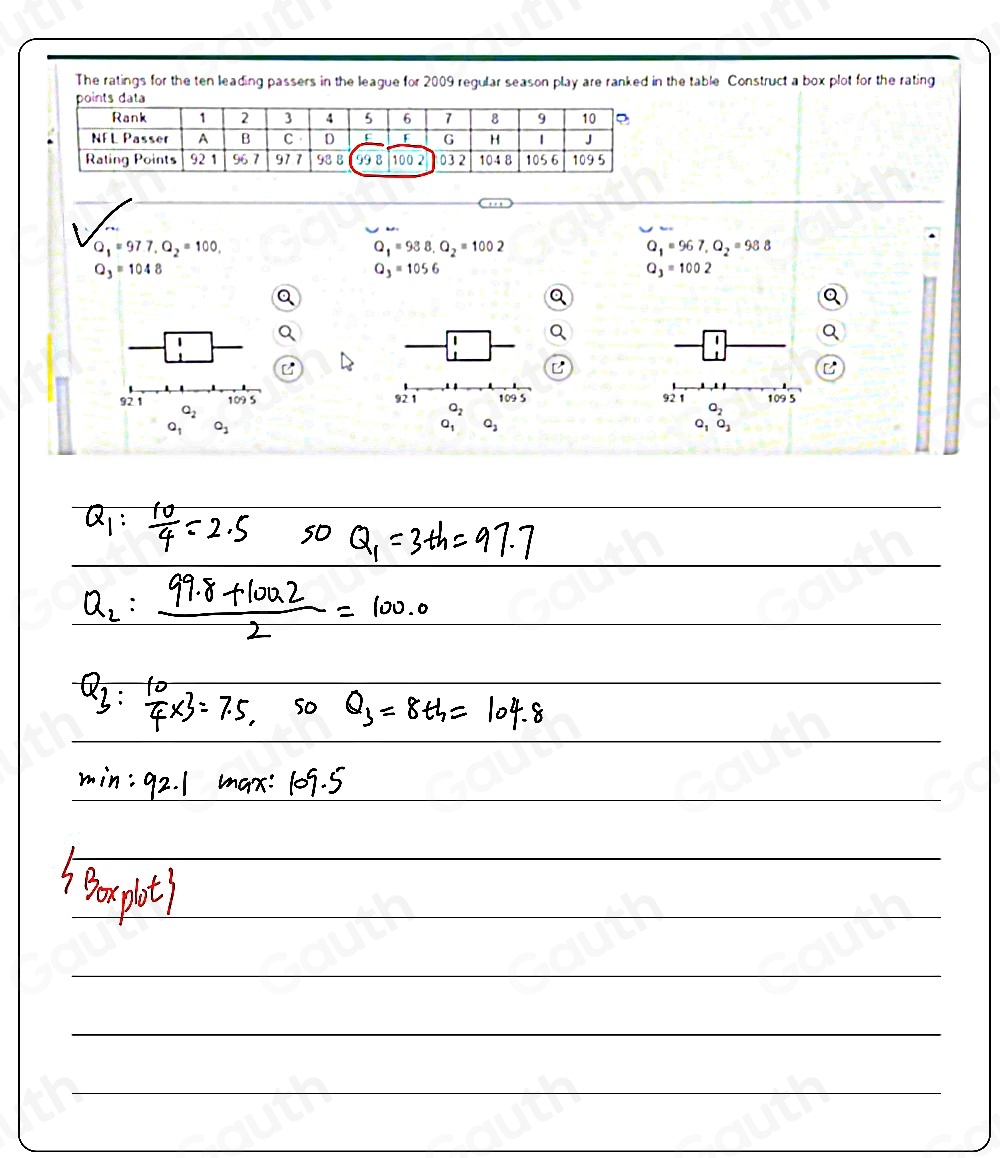 The ratings for the ten leading passers in the league for 2009 regular season play are ranked in the table Construct a box plot for the rating
points data
Rank 1 2 3 4 5 6 7 8 9 10
NFL Passer A B C D E F G H I J
Rating Points 92 1 96 7 97 7 98 8 99 8 100 2 03 2 104 8 105 6 109 5
Q1 = 97 7, Q2 = 100, Q3 = 104 8
Q1 = 98 8, Q2 = 100 2 Q3 = 105 6
Q1 = 96 7, Q2 = 98 8 Q3 = 100 2
92 1 109 5 92 1 109 5 92 1 109 5
Q2 Q2 Q2
Q1 Q3 Q1 Q3 Q1 Q3
Q1: 10/4 = 2.5 so Q1 = 3th = 97.7
Q2: (99.8 + 100.2)/2 = 100.0
Q3: 10/4 × 3 = 7.5, so Q3 = 8th = 104.8
min: 92.1 max: 109.5
{Boxplot}
Gauth